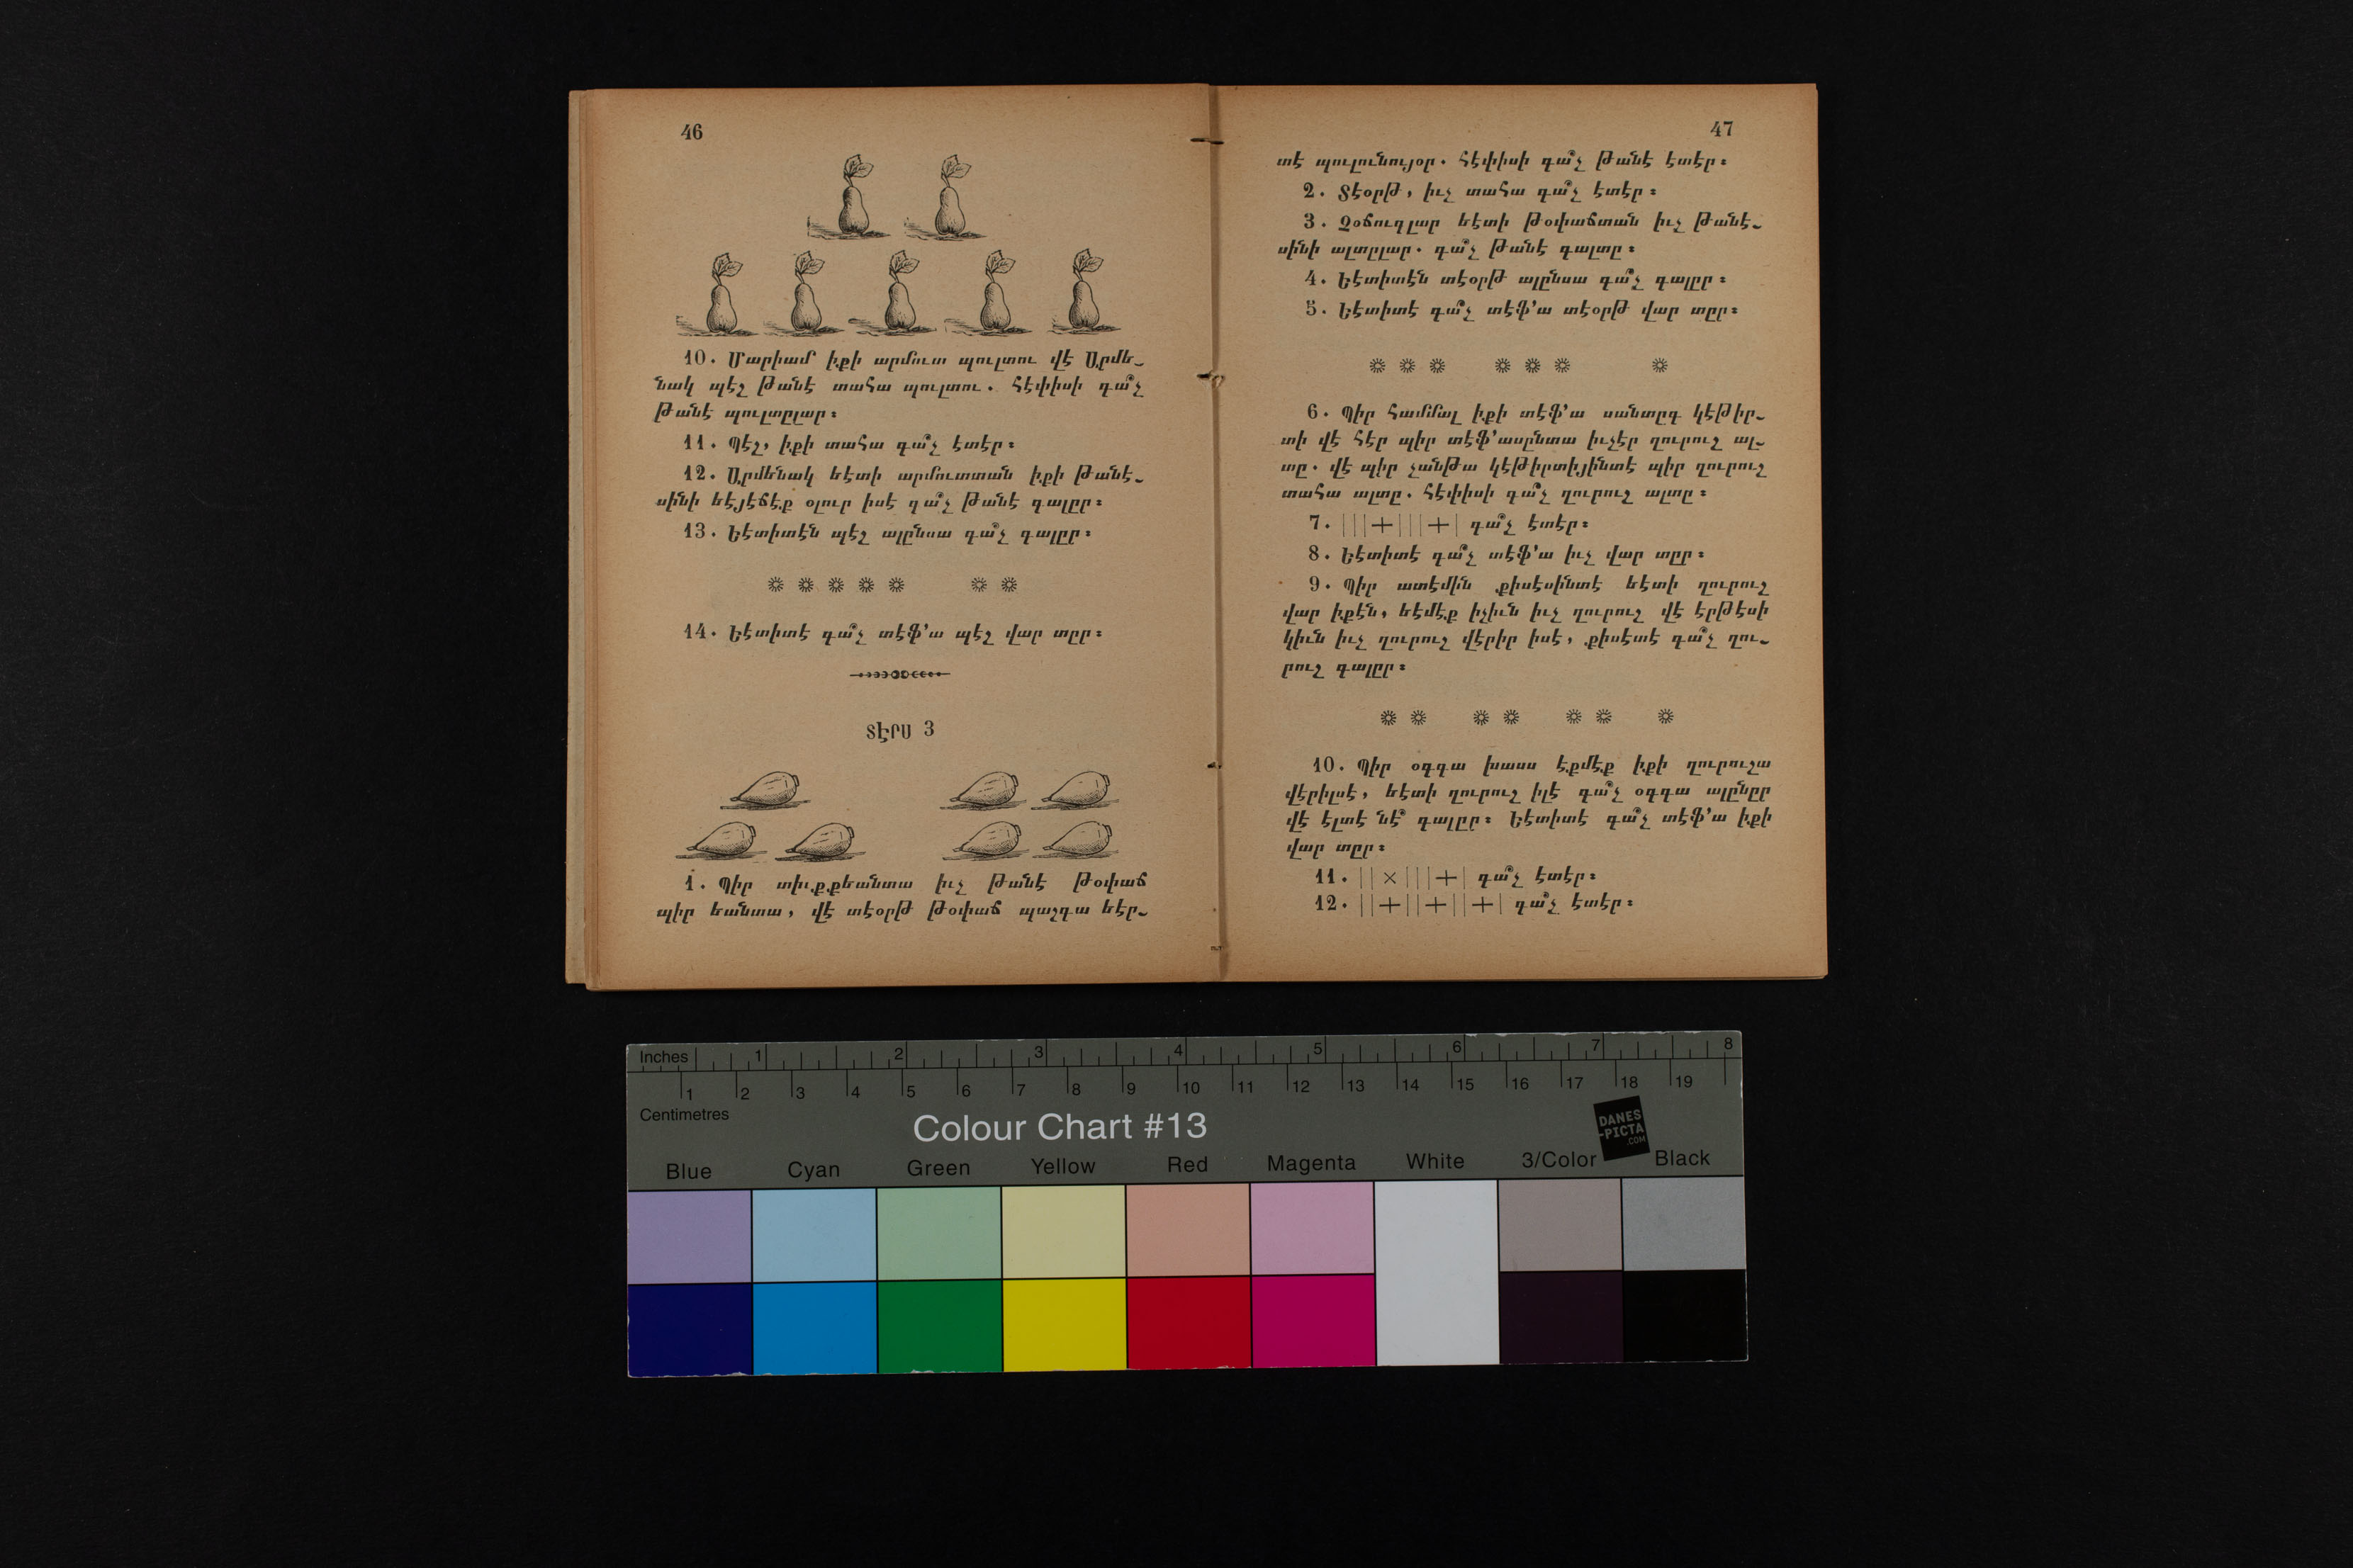 46
10. Մարիամ իքի արմուտ պուլտու վէ Արմե-
նակ պէշ թանէ տահա պուլտու. հէփիսի գա՞չ
թանէ պուլտըլար։
11. Պէշ, իքի տահա գա՞չ էտէր։
12. Արմենակ եէտի արմուտտան իքի թանէ-
սինի եէյէճէք օլուր իսէ գա՞չ թանէ գալըր։
13. Եէտիտէն պէշ ալընսա գա՞չ գալըր։
14. Եէտիտէ գա՞չ տէֆ՚ա պէշ վար տըր։
ՏԷՐՍ 3
1. Պիր տիւքքեանտա իւչ թանէ թօփաճ
պիր եանտա, վէ տէօրթ թօփաճ պաշգա եէր-
47
տէ պուլունույօր. հէփիսի գա՞չ թանէ էտէր։
2. Տէօրթ, իւչ տահա գա՞չ էտէր։
3. Չօճուգլար եէտի թօփաճտան իւչ թանէ-
սինի ալտըլար. գա՞չ թանէ գալտը։
4. Եէտիտէն տէօրթ ալընսա գա՞չ գալըր։
5. Եէտիտէ գա՞չ տէֆ՚ա տէօրթ վար տըր։
6. Պիր համմալ իքի տէֆ՚ա սանտըգ կէթիր-
տի վէ հէր պիր տէֆ՚ասընտա իւչէր ղուրուշ ալ-
տը. վէ պիր չանթա կէթիրտիյինտէ պիր ղուրուշ
տահա ալտը. հէփիսի գա՞չ ղուրուշ ալտը։
7. |||+|||+| գա՞չ էտէր։
8. Եէտիտէ գա՞չ տէֆ՚ա իւչ վար տըր։
9. Պիր ատէմին քիսէսինտէ եէտի ղուրուշ
վար իքէն, եէմէք իչիւն իւչ ղուրուշ վէ էրթէսի
կիւն իւչ ղուրուշ վէրիր իսէ, քիսէտէ գա՞չ ղու-
րուշ գալըր։
10. Պիր օգգա խասս էքմէք իքի ղուրուշա
վէրիլսէ, եէտի ղուրուշ իլէ գա՞չ օգգա ալընըր
վէ էլտէ նէ՞ գալըր։ Եէտիտէ գա՞չ տէֆ՚ա իքի
վար տըր։
11. ||×|||+| գա՞չ էտէր։
12. ||+||+||+| գա՞չ էտէր։
Inches 1 2 3 4 5 6 7 8
1 2 3 4 5 6 7 8 9 10 11 12 13 14 15 16 17 18 19
Centimetres
Colour Chart #13
DANES
-PICTA
.COM
Blue Cyan Green Yellow Red Magenta White 3/Color Black